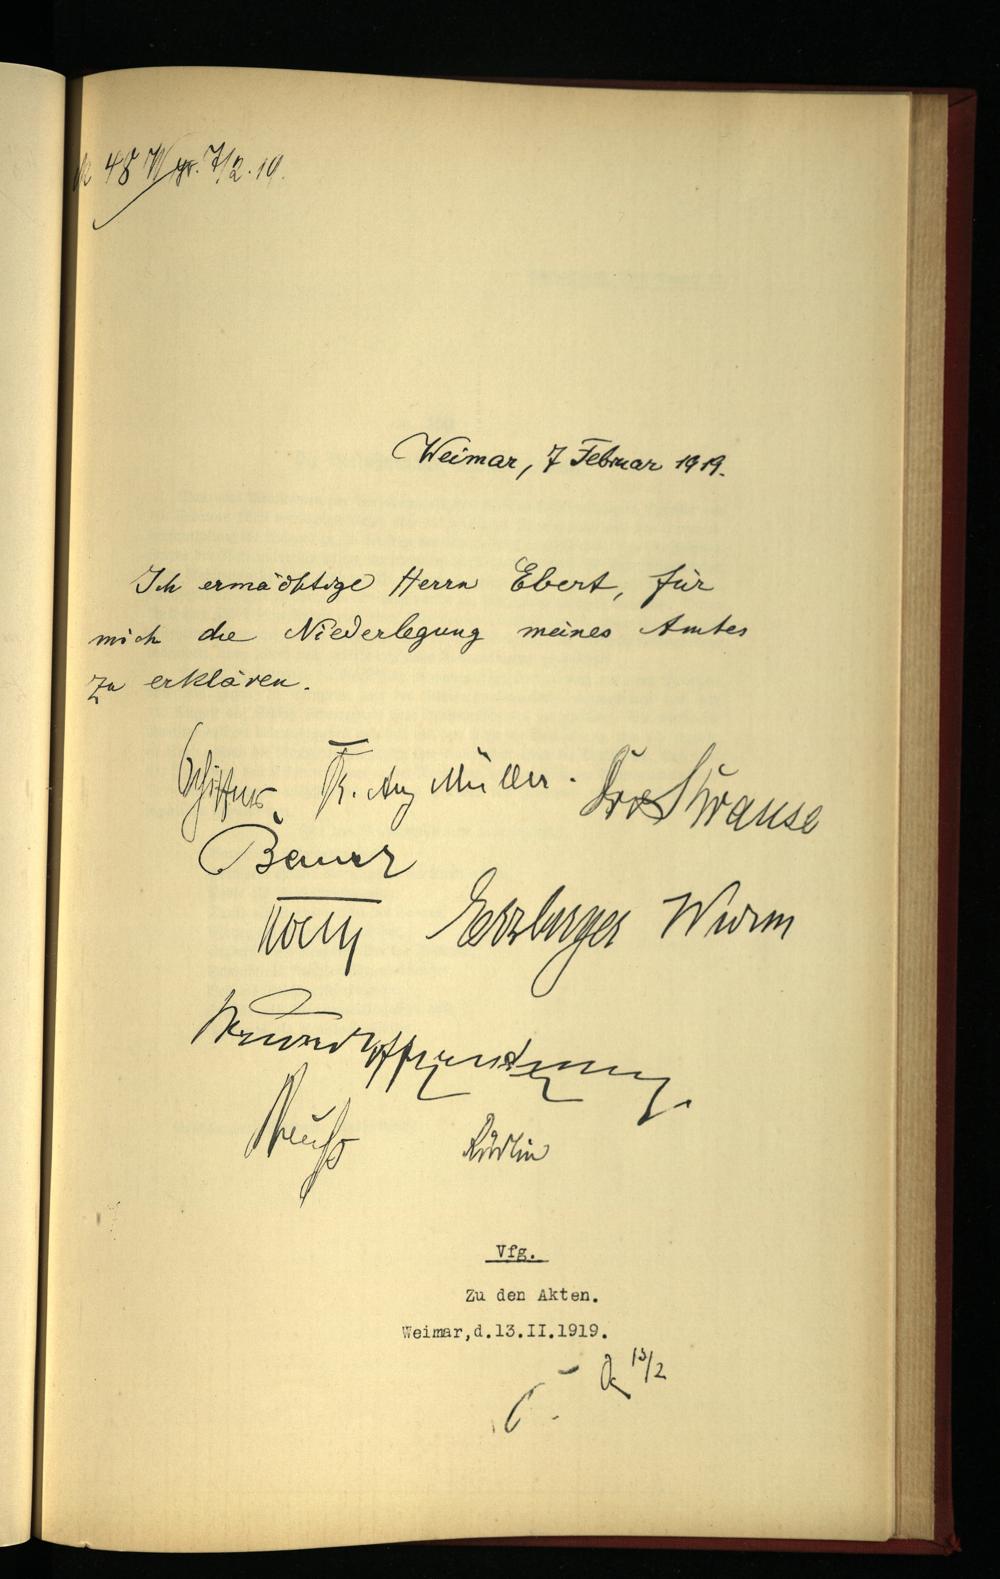 48 7/2.19.
Weimar, 7 Februar 1919.
Ich ermächtige Herrn Ebert, für
mich die Niederlegung meines Amtes
zu erklären.
Schiffer Aug Müller. Dr. Krause
Bauer
Koeth Erzberger Wurm
Preuß Rüdlin
Vfg.
Zu den Akten.
Weimar, d.13.II.1919.
13/2